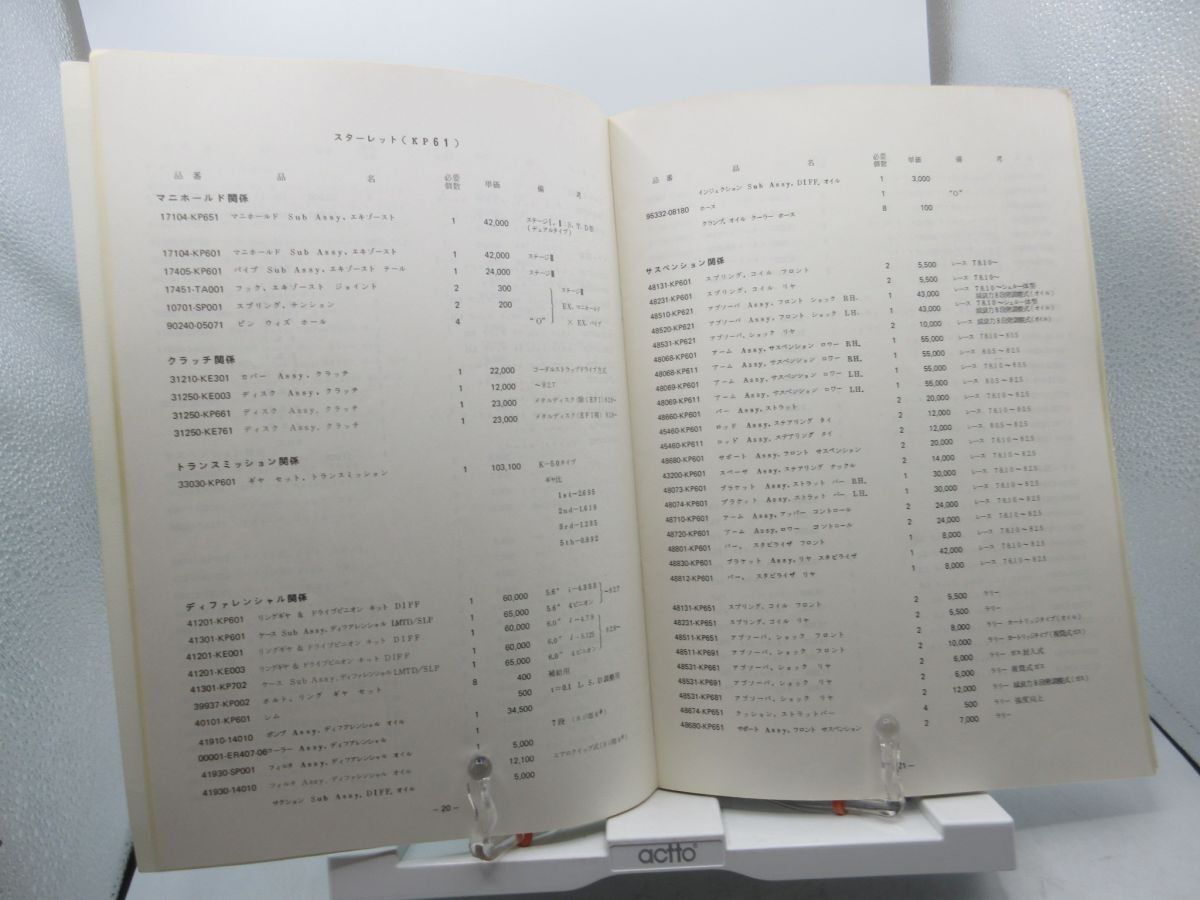 スターレット(KP61)
品番 品 名 必要個数 単価 備 考
マニホールド関係
17104-KP651 マニホールド Sub Assy, エキゾースト 1 42,000 ステージⅠ,Ⅱ S,T,D型
(デュアルタイプ)
17104-KP601 マニホールド Sub Assy, エキゾースト 1 42,000
17405-KP601 パイプ Sub Assy, エキゾースト テール 1 24,000
17451-TA001 フック, エキゾースト ジョイント 2 300
10701-SP001 スプリング, テンション 2 200 EX. マニホールド
90240-05071 ピン ウィズ ホール 4 "O" × EX. パイプ
クラッチ関係
31210-KE301 カバー Assy, クラッチ 1 22,000 コーダルストラップドライブ方式
31250-KE003 ディスク Assy, クラッチ 1 12,000 〜82.7
31250-KP661 ディスク Assy, クラッチ 1 23,000 メタルディスク(除くEFI) 82.8〜
31250-KE761 ディスク Assy, クラッチ 1 23,000 メタルディスク(EFI用) 82.8〜
トランスミッション関係
33030-KP601 ギヤ セット, トランスミッション 1 103,100 K-50タイプ
ギヤ比
1st-2.695
2nd-1.619
3rd-1.285
5th-0.892
ディファレンシャル関係
41201-KP601 リングギヤ & ドライブピニオン キット DIFF 1 60,000
41301-KP601 ケース Sub Assy, ディファレンシャル LMTD/SLP 1 65,000 5.6" 4ピニオン
41201-KE001 リングギヤ & ドライブピニオン キット DIFF 1 60,000
41201-KE003 リングギヤ & ドライブピニオン キット DIFF 1 60,000 6.0" i-5.125
41301-KP702 ケース Sub Assy, ディファレンシャル LMTD/SLP 1 65,000 6.0" 4ピニオン
39937-KP002 ボルト, リング ギヤ セット 8 400 補給用
40101-KP601 シム 500 t=0.1 L.S.D調整用
41910-14010 ポンプ Assy, ディファレンシャル オイル 1 34,500
00001-ER407-06 クーラー Assy, ディファレンシャル 1 7段
41930-SP001 フィルタ Assy, ディファレンシャル 1 5,000
41930-14010 フィルタ Assy, ディファレンシャル オイル 12,100
サクション Sub Assy, DIFF, オイル 5,000
-20-
品 番 品 名 必要個数 単価 備 考
インジェクション Sub Assy, DIFF, オイル 1 3,000
95332-08180 ホース 1 "O"
クランプ, オイル クーラー ホース 8 100
サスペンション関係
48131-KP601 スプリング, コイル フロント 2 5,500 レース 78.10〜
48231-KP601 スプリング, コイル リヤ 2 5,500 レース 78.10〜
48510-KP621 アブソーバ Assy, フロント ショック RH. 1 43,000 レース 78.10〜シェル一体型 減衰力8段発調整式(オイル)
48520-KP621 アブソーバ Assy, フロント ショック LH. 1 43,000 レース 78.10〜シェル一体型 減衰力8段発調整式(オイル)
48531-KP621 アブソーバ, ショック リヤ 2 10,000 レース 減衰力8段発調整式(オイル)
48068-KP601 アーム Assy, サスペンション ロワー RH. 1 55,000 レース 78.10〜82.5
48068-KP611 アーム Assy, サスペンション ロワー RH. 1 55,000 レース 80.5〜82.5
48069-KP601 アーム Assy, サスペンション ロワー LH. 1 55,000 レース 78.10〜82.5
48069-KP611 アーム Assy, サスペンション ロワー LH. 1 55,000 レース 80.5〜82.5
48660-KP601 バー Assy, ストラット 2 20,000 レース 78.10〜82.5
45460-KP601 ロッド Assy, ステアリング タイ 2 12,000 レース 78.10〜82.5
45460-KP611 ロッド Assy, ステアリング タイ 2 12,000 レース 80.5〜82.5
48680-KP601 サポート Assy, フロント サスペンション 2 20,000 レース 78.10〜82.5
43200-KP601 スペーサ Assy, ステアリング ナックル 2 14,000 レース 78.10〜82.5
48073-KP601 ブラケット Assy, ストラット バー RH. 1 30,000 レース 78.10〜82.5
48074-KP601 ブラケット Assy, ストラット バー LH. 1 30,000 レース 78.10〜82.5
48710-KP601 アーム Assy, アッパー コントロール 2 24,000 レース 78.10〜82.5
48720-KP601 アーム Assy, ロワー コントロール 2 24,000 レース 78.10〜82.5
48801-KP601 バー, スタビライザ フロント 1 8,000 レース 78.10〜82.5
48830-KP601 ブラケット Assy, リヤ スタビライザ 1 42,000 レース 78.10〜82.5
48812-KP601 バー, スタビライザ リヤ 1 8,000 レース 78.10〜82.5
48131-KP651 スプリング, コイル フロント 2 5,500 ラリー
48231-KP651 スプリング, コイル リヤ 2 5,500 ラリー
48511-KP651 アブソーバ, ショック フロント 2 8,000 ラリー カートリッジタイプ(オイル)
48511-KP691 アブソーバ, ショック フロント 2 10,000 ラリー カートリッジタイプ(複筒式ガス)
48531-KP661 アブソーバ, ショック リヤ 2 6,000 ラリー ガス封入式
48531-KP691 アブソーバ, ショック リヤ 2 6,000 ラリー 複筒式ガス
48531-KP681 アブソーバ, ショック リヤ 2 12,000 ラリー 減衰力8段発調整式(ガス)
48674-KP651 クッション, ストラットバー 4 500 ラリー 強度向上
48680-KP651 サポート Assy, フロント サスペンション 2 7,000 ラリー
21-
actto